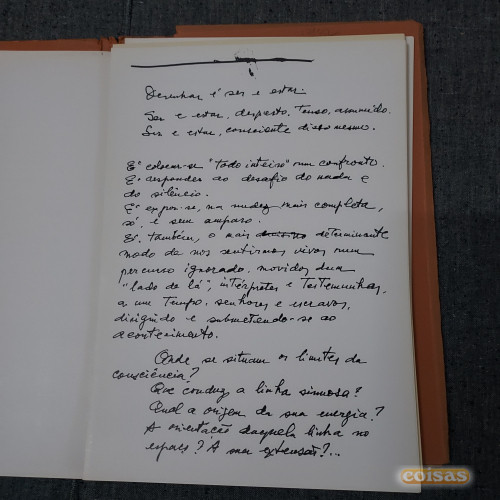 Desenhar é ser e estar.
Ser e estar, desperto, tenso, assumido.
Ser e estar, consciente disso mesmo.
É colocar-se "todo inteiro" num confronto.
É responder ao desafio do nada e
do silêncio.
É expor-se, na nudez mais completa,
só e sem amparo.
É, também, o mais determinante
modo de nos sentirmos vivos num
percurso ignorado, movidos dum
"lado de lá", intérpretes e testemunhas,
a um tempo, senhores e escravos,
dirigindo e submetendo-se ao
acontecimento.
Onde se situam os limites da
consciência?
Que conduz a linha sinuosa?
Qual a origem da sua energia?
A orientação daquela linha no
espaço? A sua extensão?...
coisas